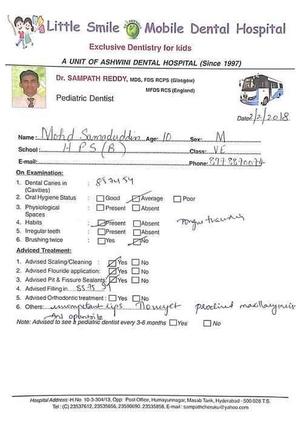 Little Smile Mobile Dental Hospital
Exclusive Dentistry for kids
A UNIT OF ASHWINI DENTAL HOSPITAL (Since 1997)
Dr. SAMPATH REDDY, MDS, FDS RCPS (Glasgow)
MFDS RCS (England)
Pediatric Dentist
Date: /2/2018
Name: Mohd Samaduddin Age: 10 Sex: M
School: H P S (B) Class: VE
E-mail: Phone:
On Examination:
1. Dental Caries in (Cavities) :
2. Oral Hygiene Status : Good Average Poor
3. Physiological Spaces : Present Absent
4. Habits : Present Absent
5. Irregular teeth : Present Absent
6. Brushing twice : Yes No
Adviced Treatment:
1. Advised Scaling/Cleaning : Yes No
2. Advised Flouride application: Yes No
3. Advised Pit & Fissure Sealants Yes No
4. Advised Filling in
5. Advised Orthodontic treatment : Yes No
6. Others: lips maxillary
Note: Advised to see a pediatric dentist every 3-6 months Yes No
Hospital Address: H.No. 10-3-304/13, Opp. Football Ground, Humayunnagar, Masab Tank, Hyderabad - 500 028 T.S.
Tel: (C) 23537612, 23535656, 23590690, 23535858, E-mail : sampathcheruku@yahoo.com